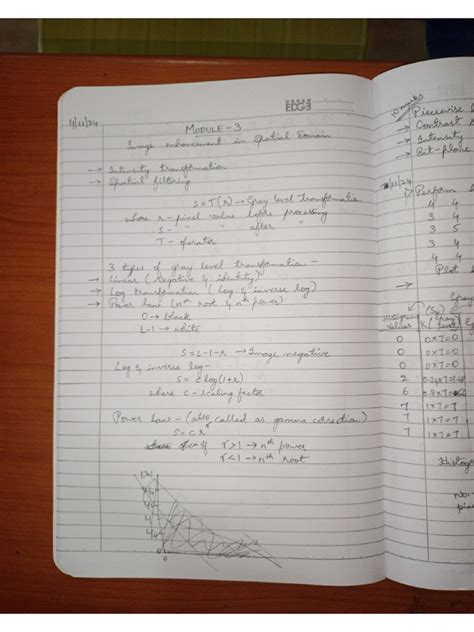 EDGE
4/11/24
MODULE-3
Image enhancement in Spatial Domain
→ Intensity transformation
→ Spatial filtering
S=T(r) → Gray level Transformation
where r - pixel value before processing
S - " " after "
T - operator
3 types of gray level transformation -
→ Linear (Negative & identity)
→ Log transformation (Log & inverse log)
→ Power law (nth root & nth power)
0 → black
L-1 → white
S=L-1-r → Image negative
Log & inverse log -
S= c log(1+r)
where c - scaling factor
Power law - (also called as gamma correction)
S= c r^γ
if γ>1 → nth power
γ<1 → nth root
10 marks
Piecewise
→ Contrast
→ Intensity
→ Bit-plane
/11/24
Perform
4 4
3 4
3 5
3 4
4 4
Plot
Gray
values
0 0x7=0
0 0x7=0
0 0x7=0
2
6
7 1x7=7
7 1x7=7
7 1x7=7
Histog
No.
pixe